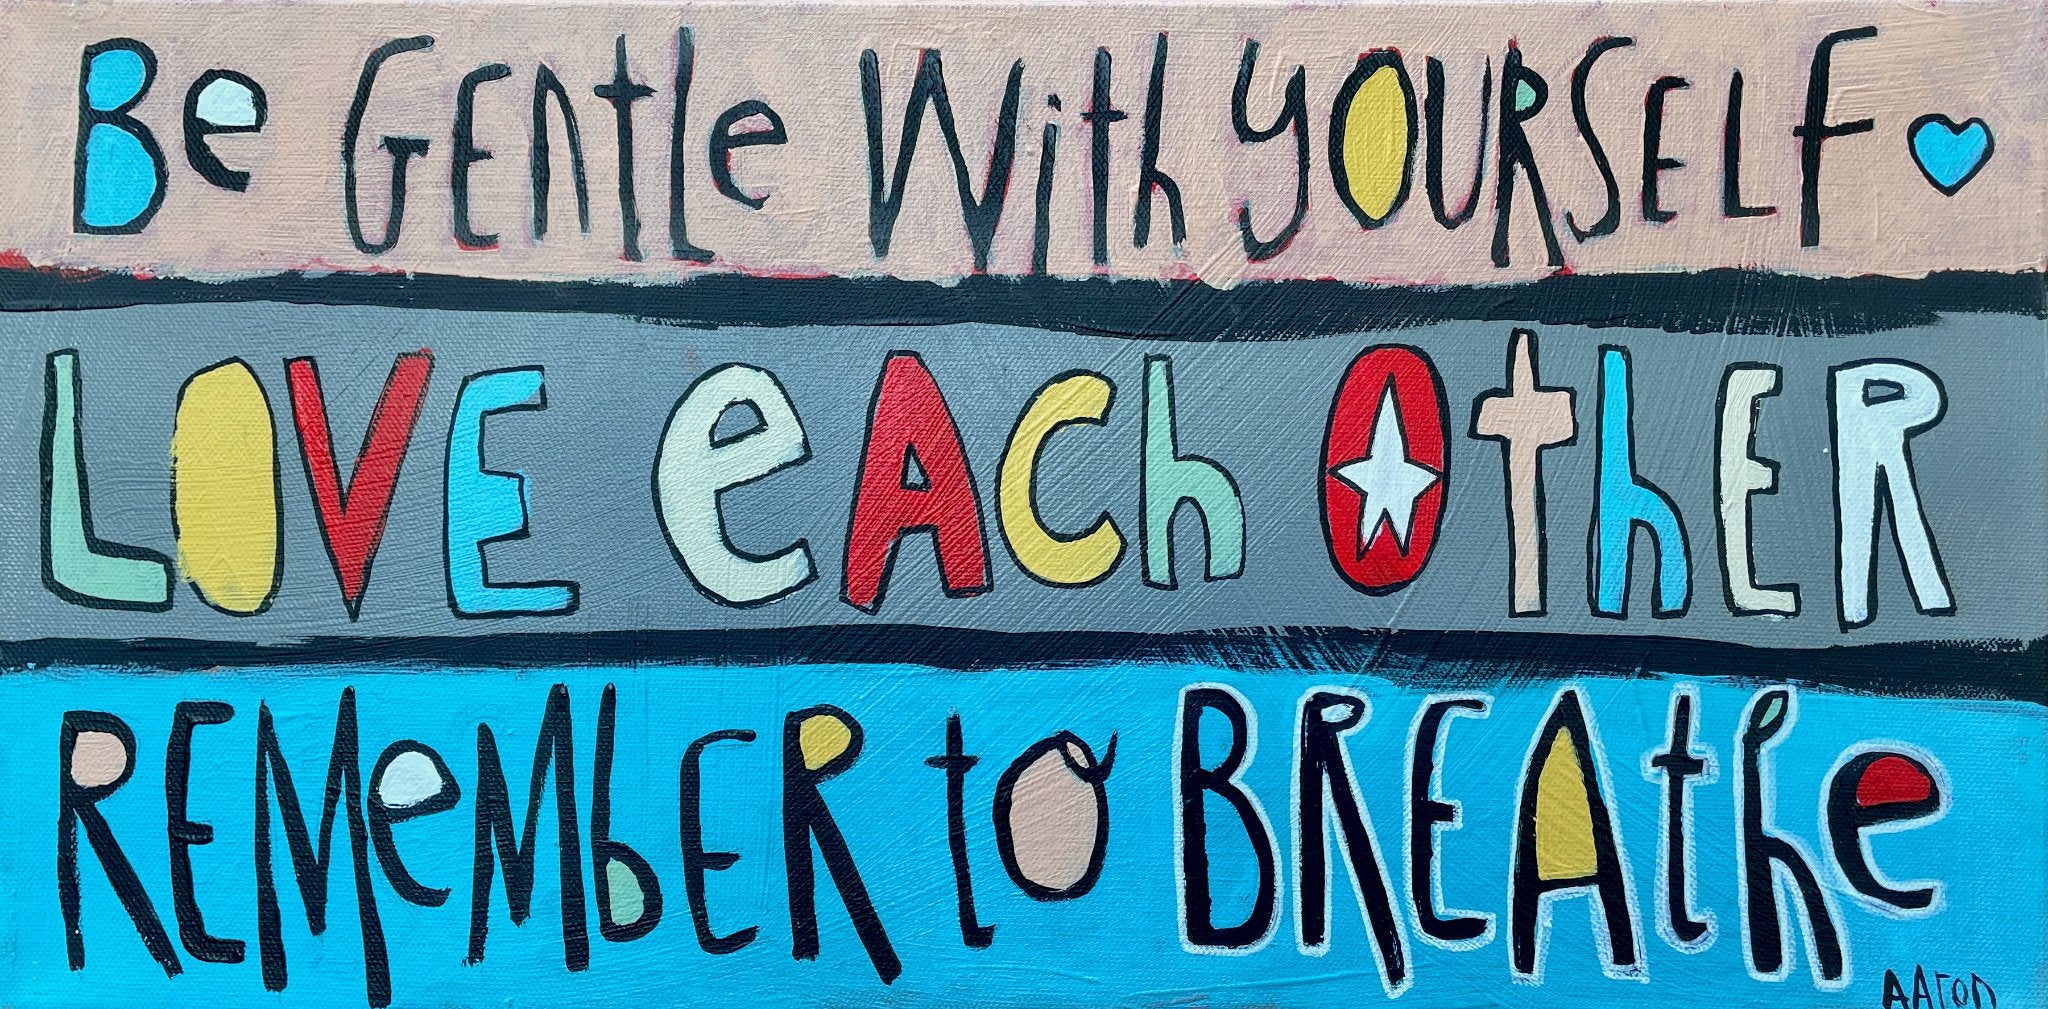 Be GEntle With yOURSELF
LOVE eACh OthER
REMeMbER to BREAthe
AAron